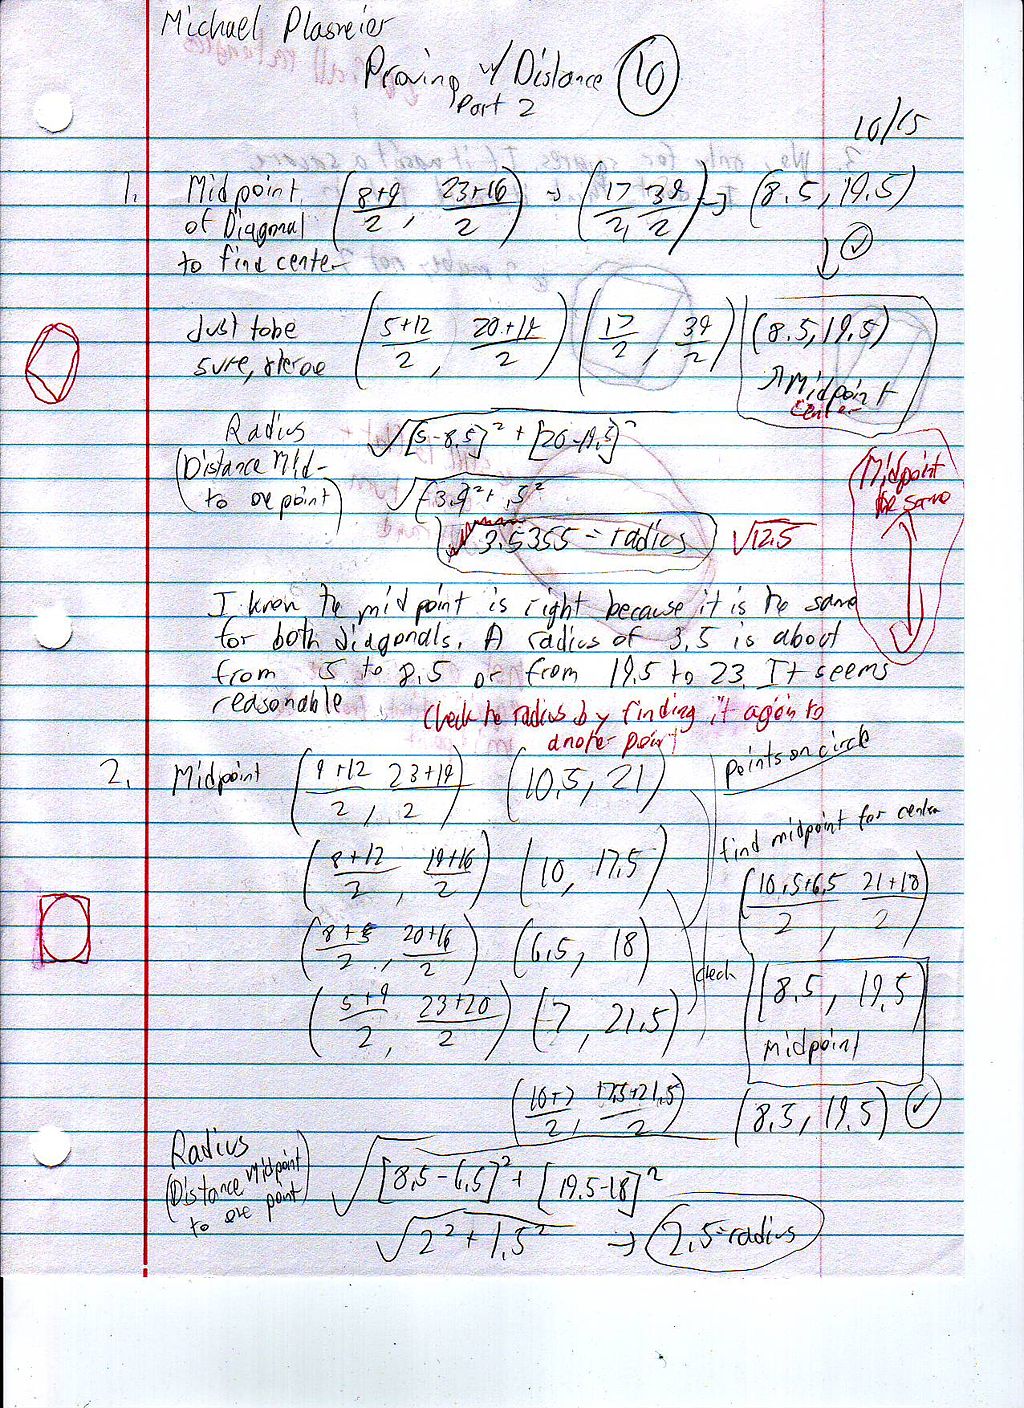 Michael Plasmeier
Proving w/ Distance (10)
Part 2
10/15
1. Midpoint of Diagonal to find center (8+9/2, 23+16/2) → (17/2, 39/2) → (8.5, 19.5)
Just to be sure, (5+12/2, 20+19/2) (17/2, 39/2) (8.5, 19.5)
↗ Midpoint
center
Radius √[5-8.5]² + [20-19.5]²
(Distance Mid-
to one point) √(-3.5²+.5²
3.5355 = radius √12.5
Midpoint
the same
I know the midpoint is right because it is the same
for both diagonals. A radius of 3.5 is about
from 5 to 8.5 or from 19.5 to 23. It seems
reasonable
Check the radius by finding it again to
another point
2. Midpoint (9+12/2, 23+19/2) (10.5, 21)
points on circle
(8+12/2, 19+16/2) (10, 17.5)
find midpoint for center
(10.5+6.5/2, 21+18/2)
(8+5/2, 20+16/2) (6.5, 18)
check
(5+9/2, 23+20/2) (7, 21.5)
(8.5, 19.5)
Midpoint
(10+7/2, 17.5+21.5/2) (8.5, 19.5) ✓
Radius
(Distance Midpoint
to one point) √[8.5-6.5]² + [19.5-18]²
√2² + 1.5² → 2.5=radius